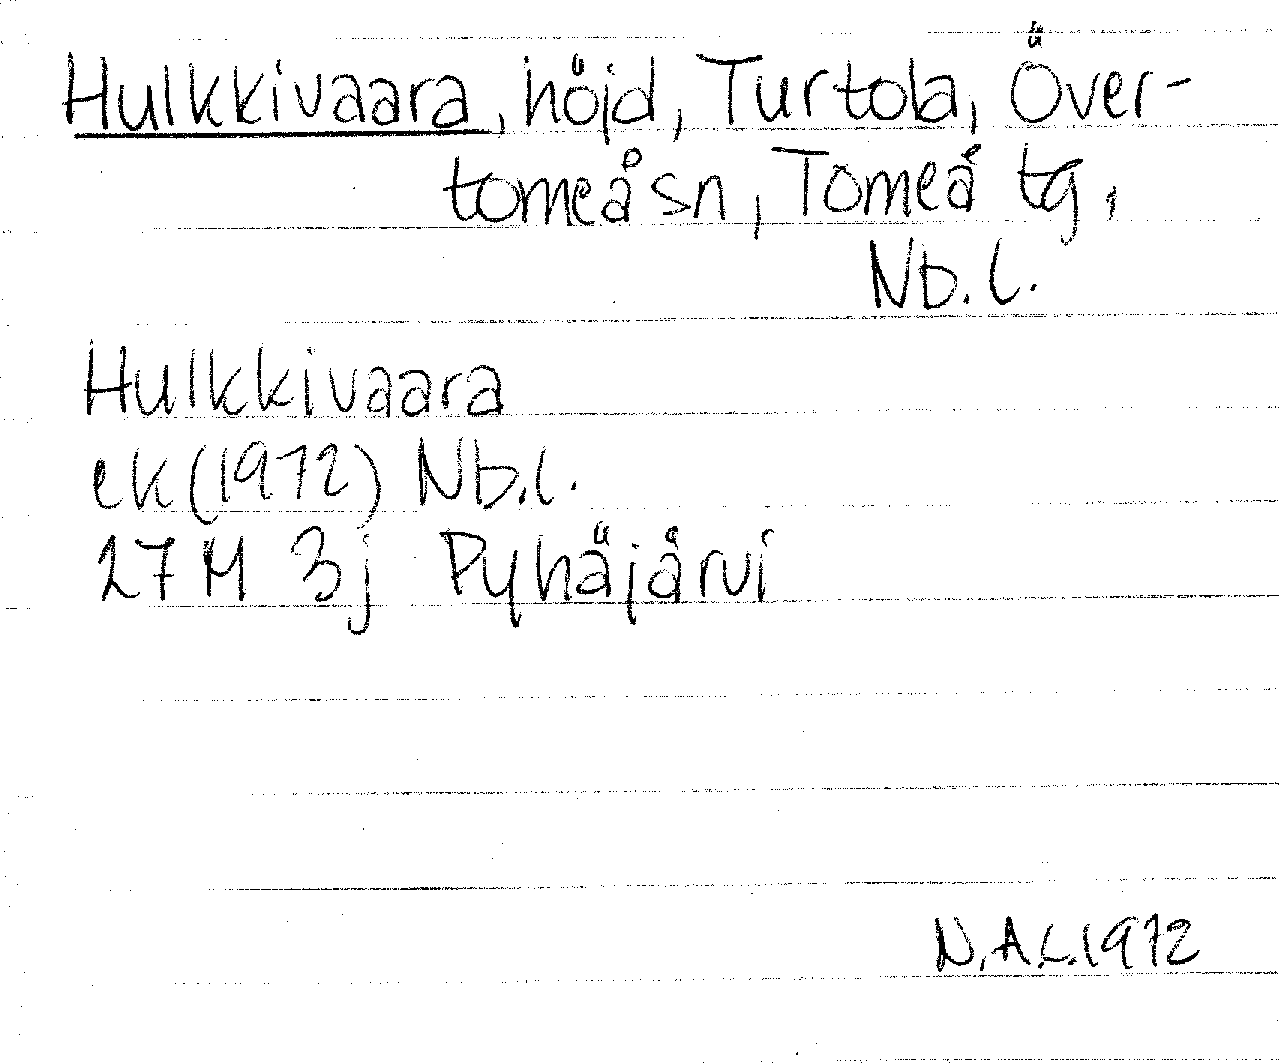 Hulkkivaara, höjd, Turtola, Över-
torneå sn, Torneå tg,
Nb. l.
Hulkkivaara
ek (1972) Nb.l.
27 M 3j Pyhäjärvi
N.A.L. 1972